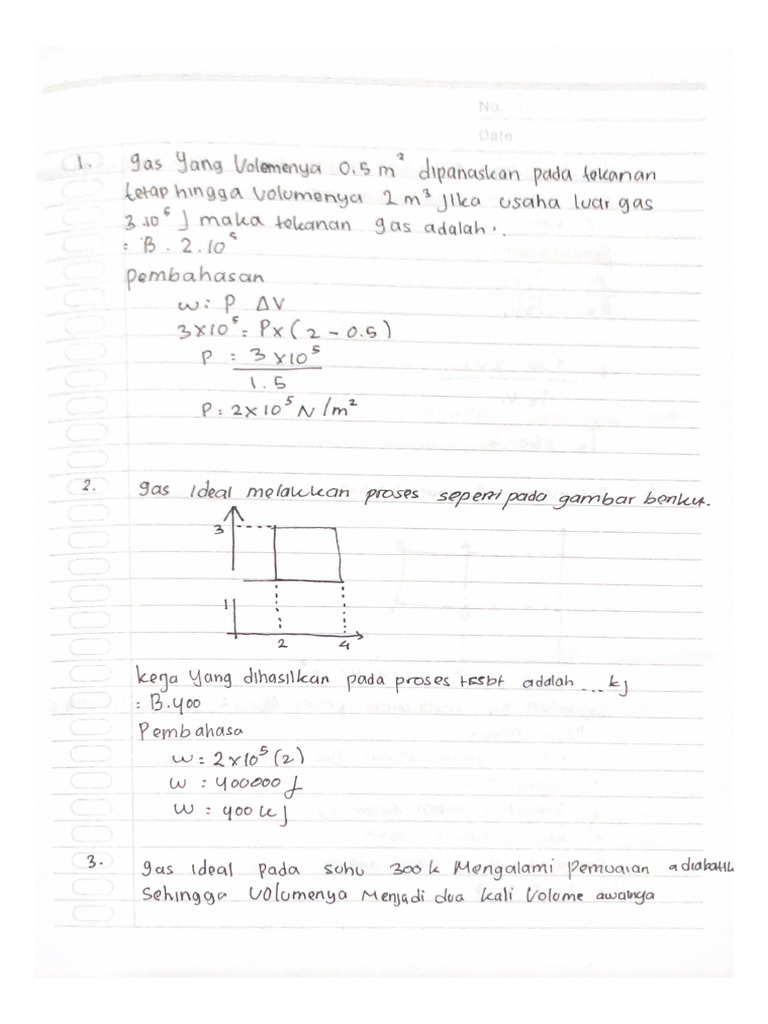 No.
Date
1. gas yang Volemenya 0.5 m² dipanaskan pada tekanan
tetap hingga volumenya 2 m³ jika usaha luar gas
3.10⁵ J maka tekanan gas adalah..
: B. 2.10⁵
Pembahasan
w: P ΔV
3x10⁵ = Px(2-0.5)
P : 3x10⁵
1.5
P: 2x10⁵ N/m²
2. gas ideal melakukan proses seperti pada gambar berikut.
3
1
2 4
kerja yang dihasilkan pada proses tssbt adalah ... kj
: B.400
Pembahasa
w: 2x10⁵(2)
w : 400000 J
w : 400 kJ
3. gas ideal pada suhu 300 k Mengalami pemuaian adiabatik
Sehingga volumenya Menjadi dua kali Volume awalnya